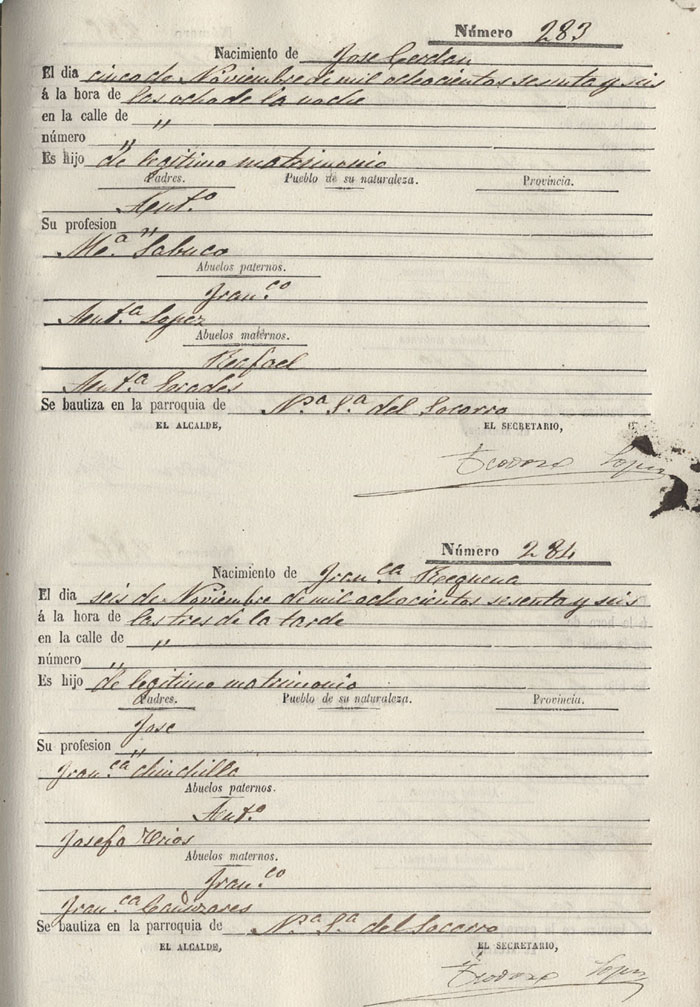 Número 283
Nacimiento de Jose Cerdan
El dia cinco de Noviembre de mil ochocientos sesenta y seis
á la hora de las ocho de la noche
en la calle de "
número "
Es hijo de legitimo matrimonio
Padres. Pueblo de su naturaleza. Provincia.
Ant.º
Su profesion "
M.ª Sabuco
Abuelos paternos.
Fran.co
Ant.ª Lopez
Abuelos maternos.
Rafael
Ant.ª
Se bautiza en la parroquia de N.ª S.ª del Socorro
EL ALCALDE, EL SECRETARIO,
Teodoro Lopez
Número 284
Nacimiento de Fran.ca Requena
El dia seis de Noviembre de mil ochocientos sesenta y seis
á la hora de las tres de la tarde
en la calle de "
número "
Es hijo de legitimo matrimonio
Padres. Pueblo de su naturaleza. Provincia.
Jose
Su profesion "
Fran.ca Chinchilla
Abuelos paternos.
Ant.º
Josefa Rios
Abuelos maternos.
Fran.co
Fran.ca Cañizares
Se bautiza en la parroquia de N.ª S.ª del Socorro
EL ALCALDE, EL SECRETARIO,
Teodoro Lopez